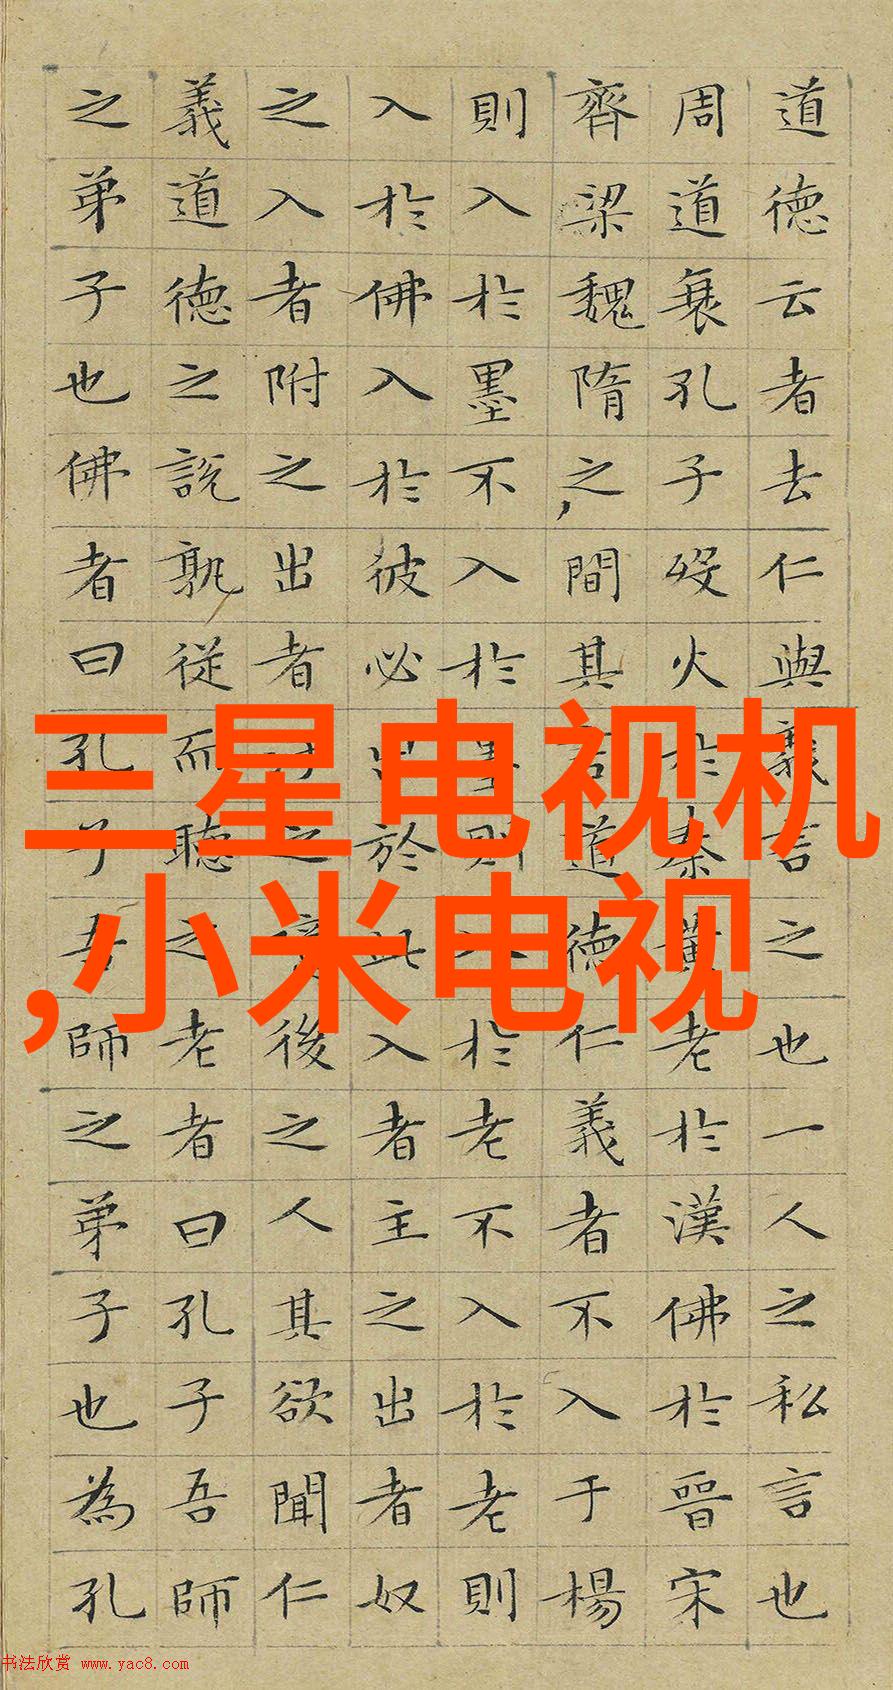 道德云者去仁與義言之也一人之私言也
周道衰孔子歿火於秦黃老於漢佛於晉宋
齊梁魏隋之間其言道德仁義者不入于楊
則入於墨不入於墨則入於老不入於老則
入於佛入於彼必出於此入者主之出者奴
之入者附之出者汙之噫後之人其欲聞仁
義道德之說孰從而聽之老者曰孔子吾師
之弟子也佛者曰孔子吾師之弟子也為孔
三星电视机
,小米电视
书法欣赏 www.yac8.com